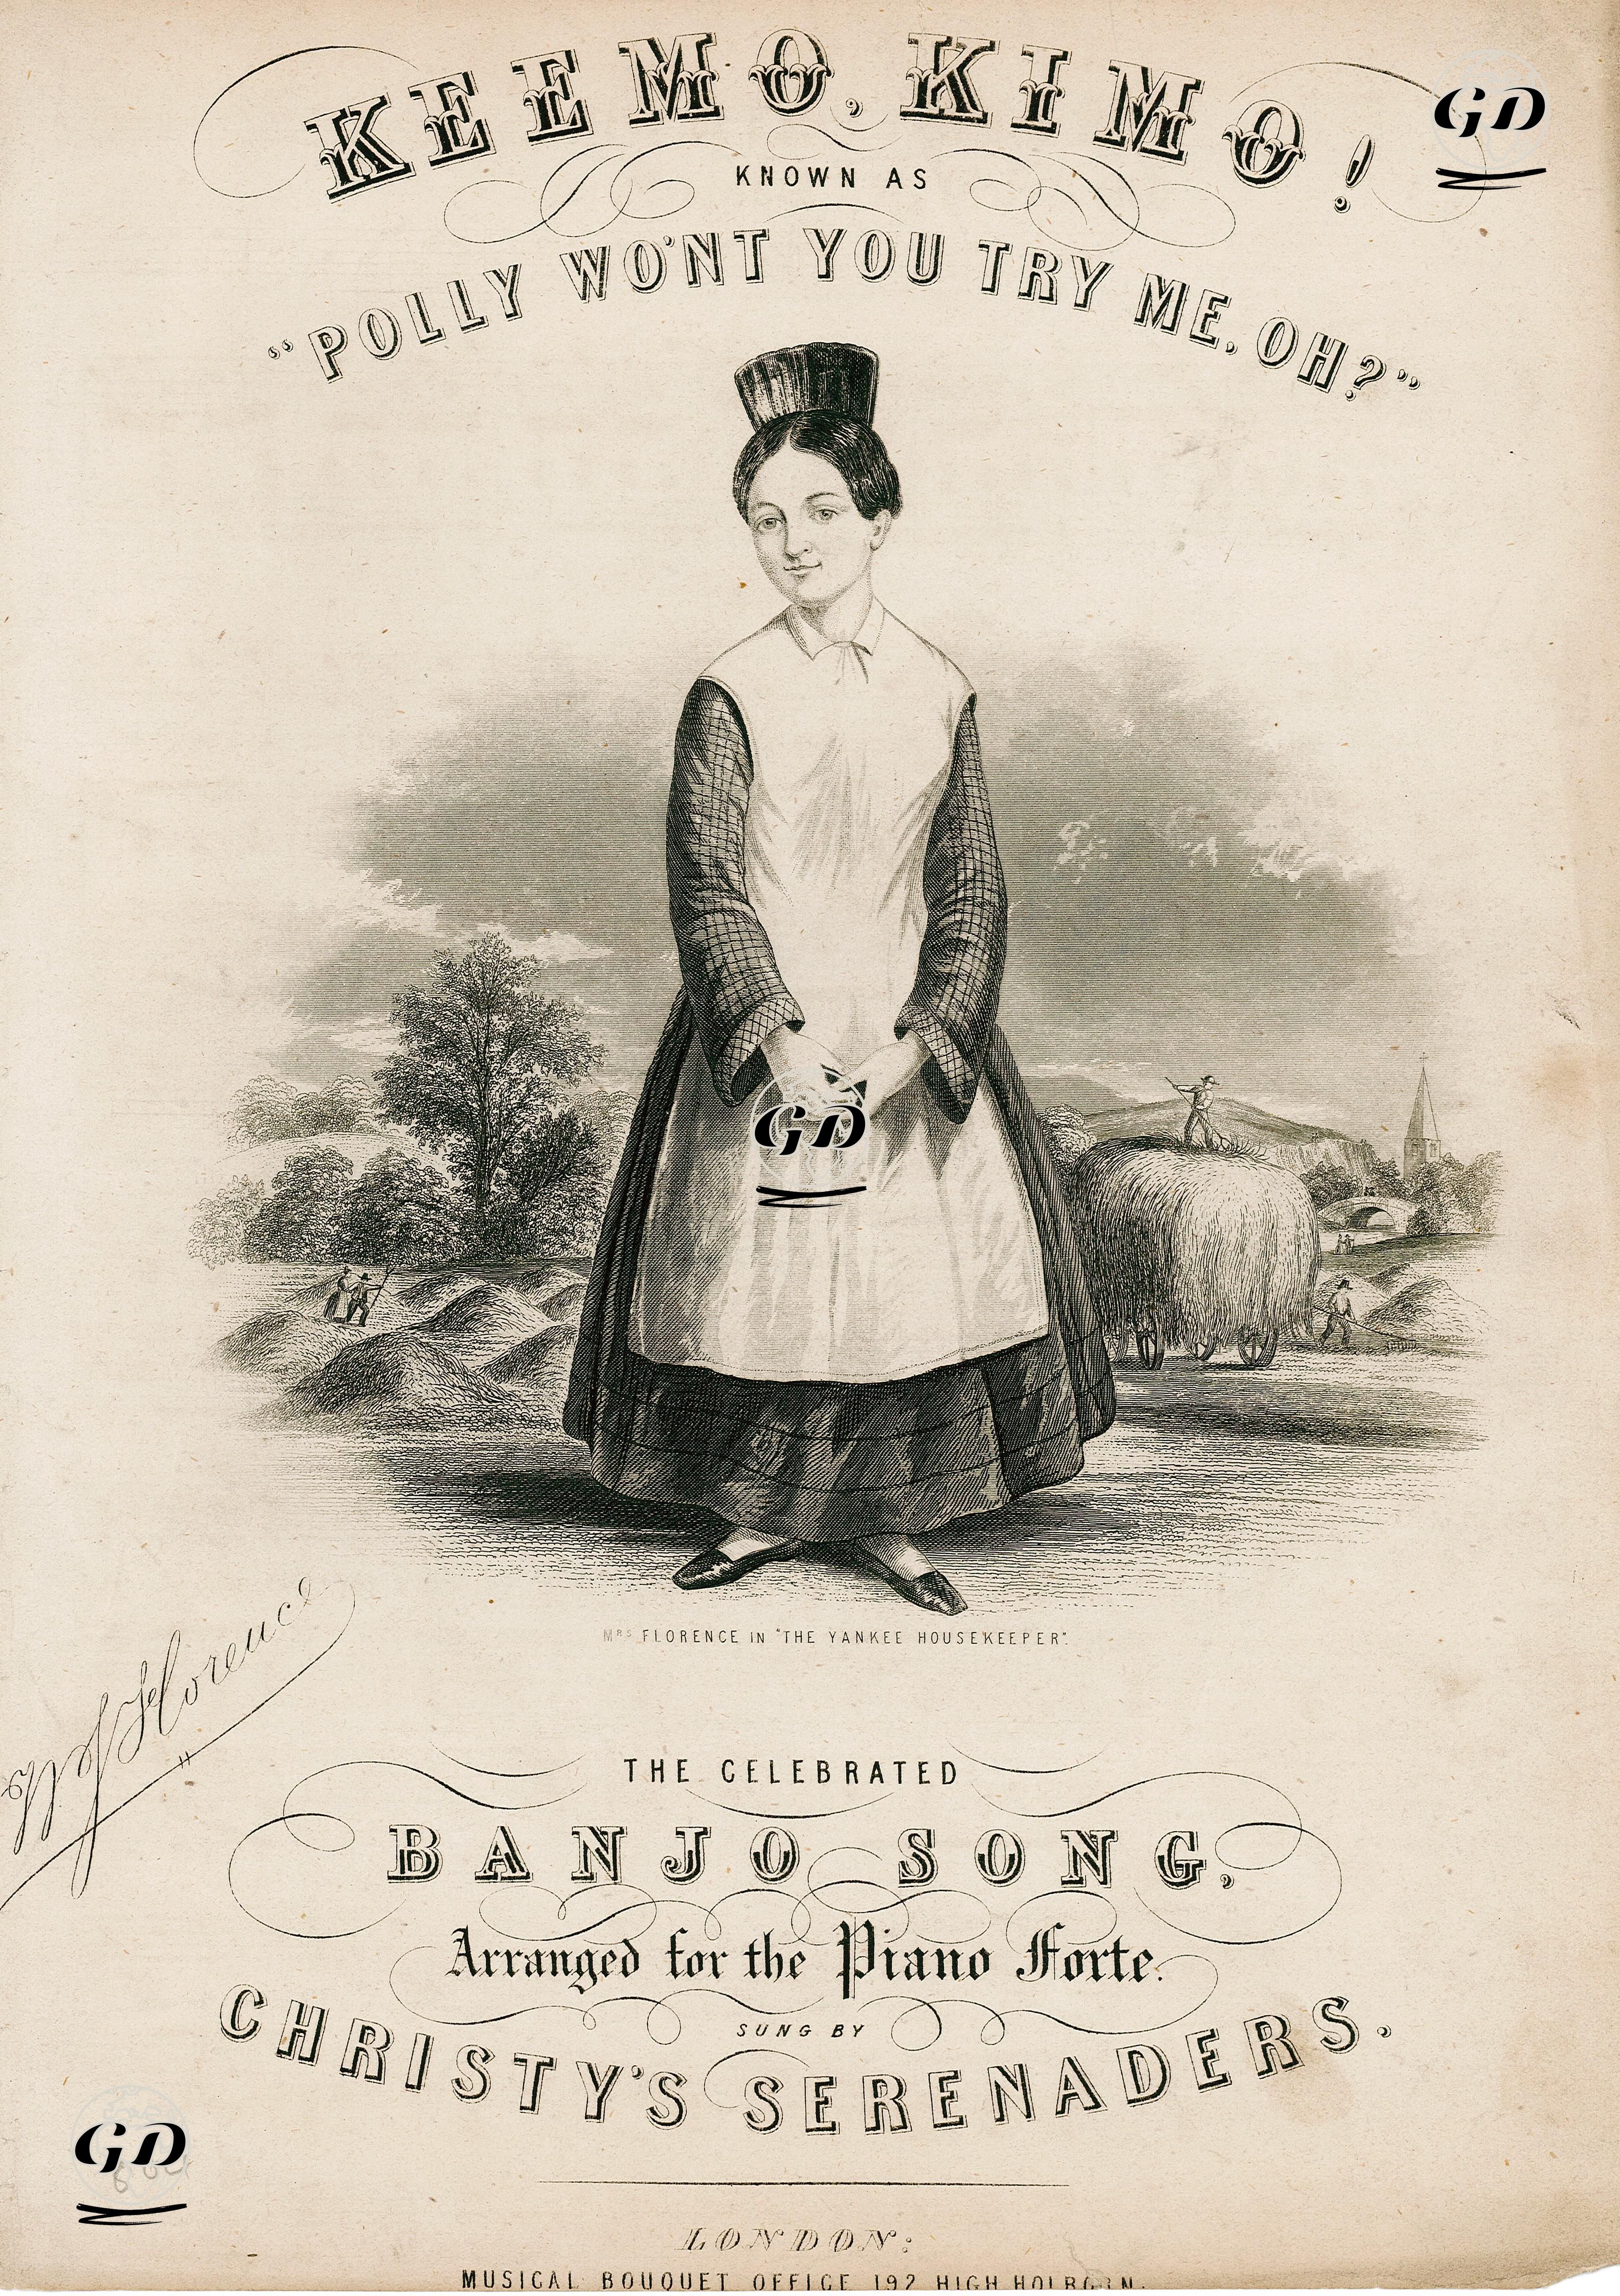 KEEMO, KIMO!
KNOWN AS
"POLLY WO'NT YOU TRY ME, OH?"
MRS FLORENCE IN "THE YANKEE HOUSEKEEPER".
W J Florence
THE CELEBRATED
BANJO SONG,
Arranged for the Piano Forte.
SUNG BY
CHRISTY'S SERENADERS.
LONDON:
MUSICAL BOUQUET OFFICE 192 HIGH HOLBORN.
GD
GD
GD